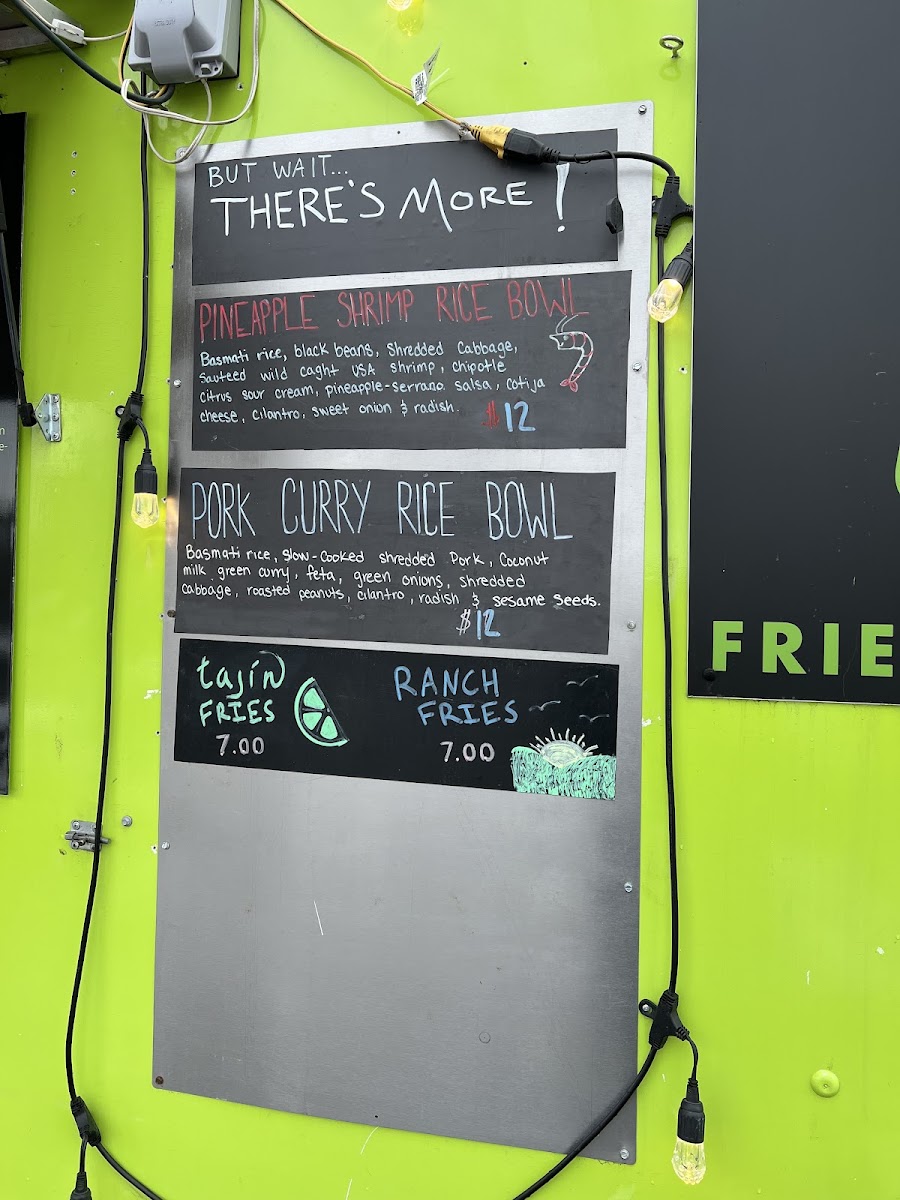 BUT WAIT...
THERE'S MORE!
PINEAPPLE SHRIMP RICE BOWL
Basmati rice, black beans, Shredded Cabbage,
Sauteed wild caght USA shrimp, chipotle
citrus sour cream, pineapple-serrano salsa, cotija
cheese, cilantro, sweet onion & radish.
$12
PORK CURRY RICE BOWL
Basmati rice, slow-cooked shredded Pork, Coconut
milk green curry, feta, green onions, shredded
cabbage, roasted peanuts, cilantro, radish & sesame seeds.
$12
tajín
FRIES
7.00
RANCH
FRIES
7.00
FRIE